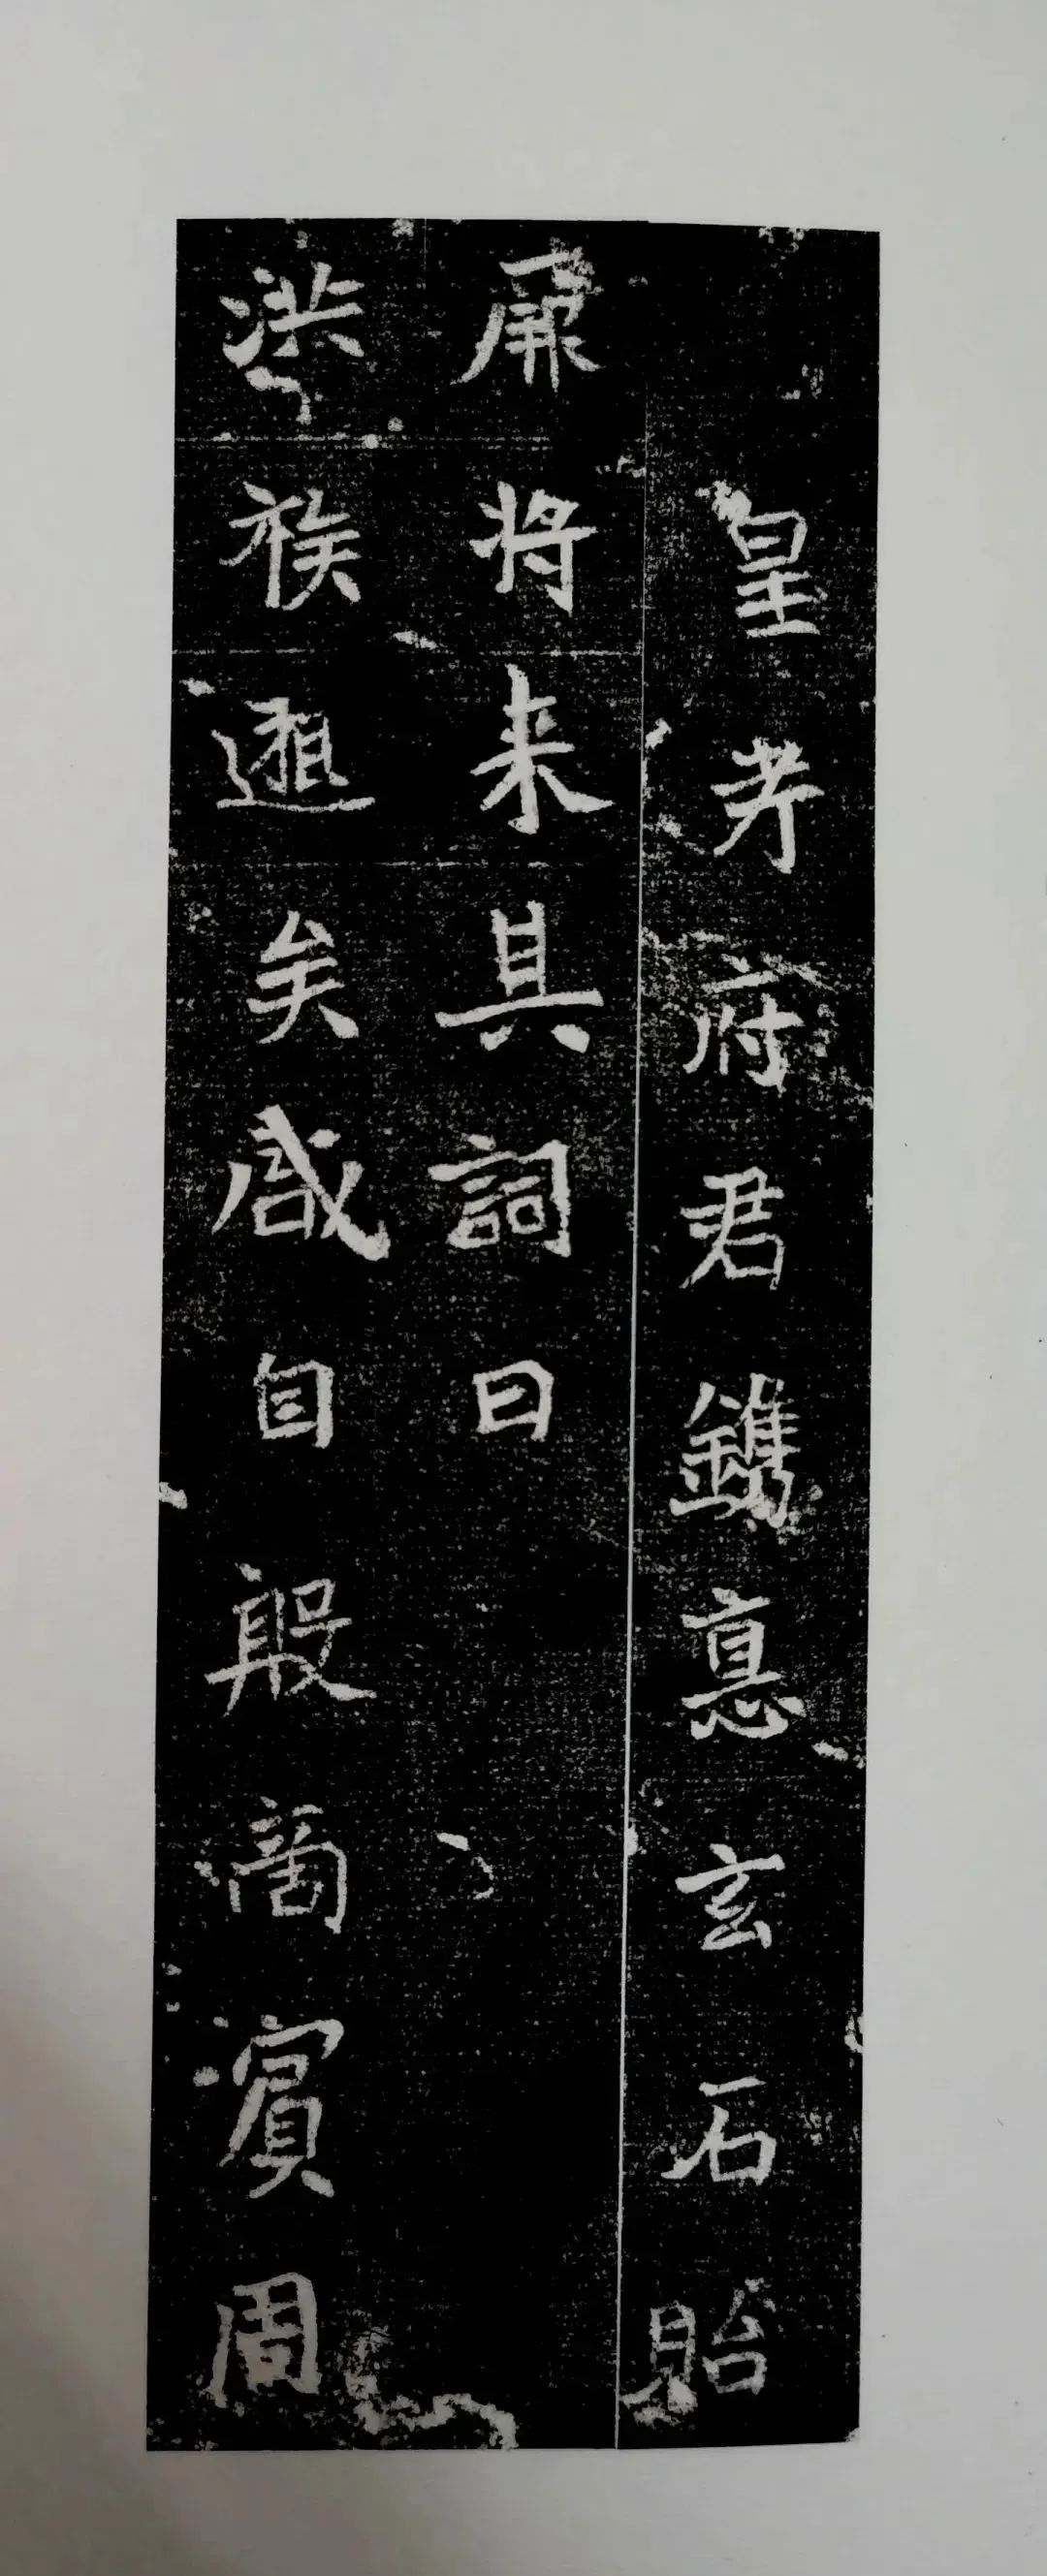 皇考府君鐫惪玄石貽
厥将来其詞曰
洪族遐矣咸自殷商賓周